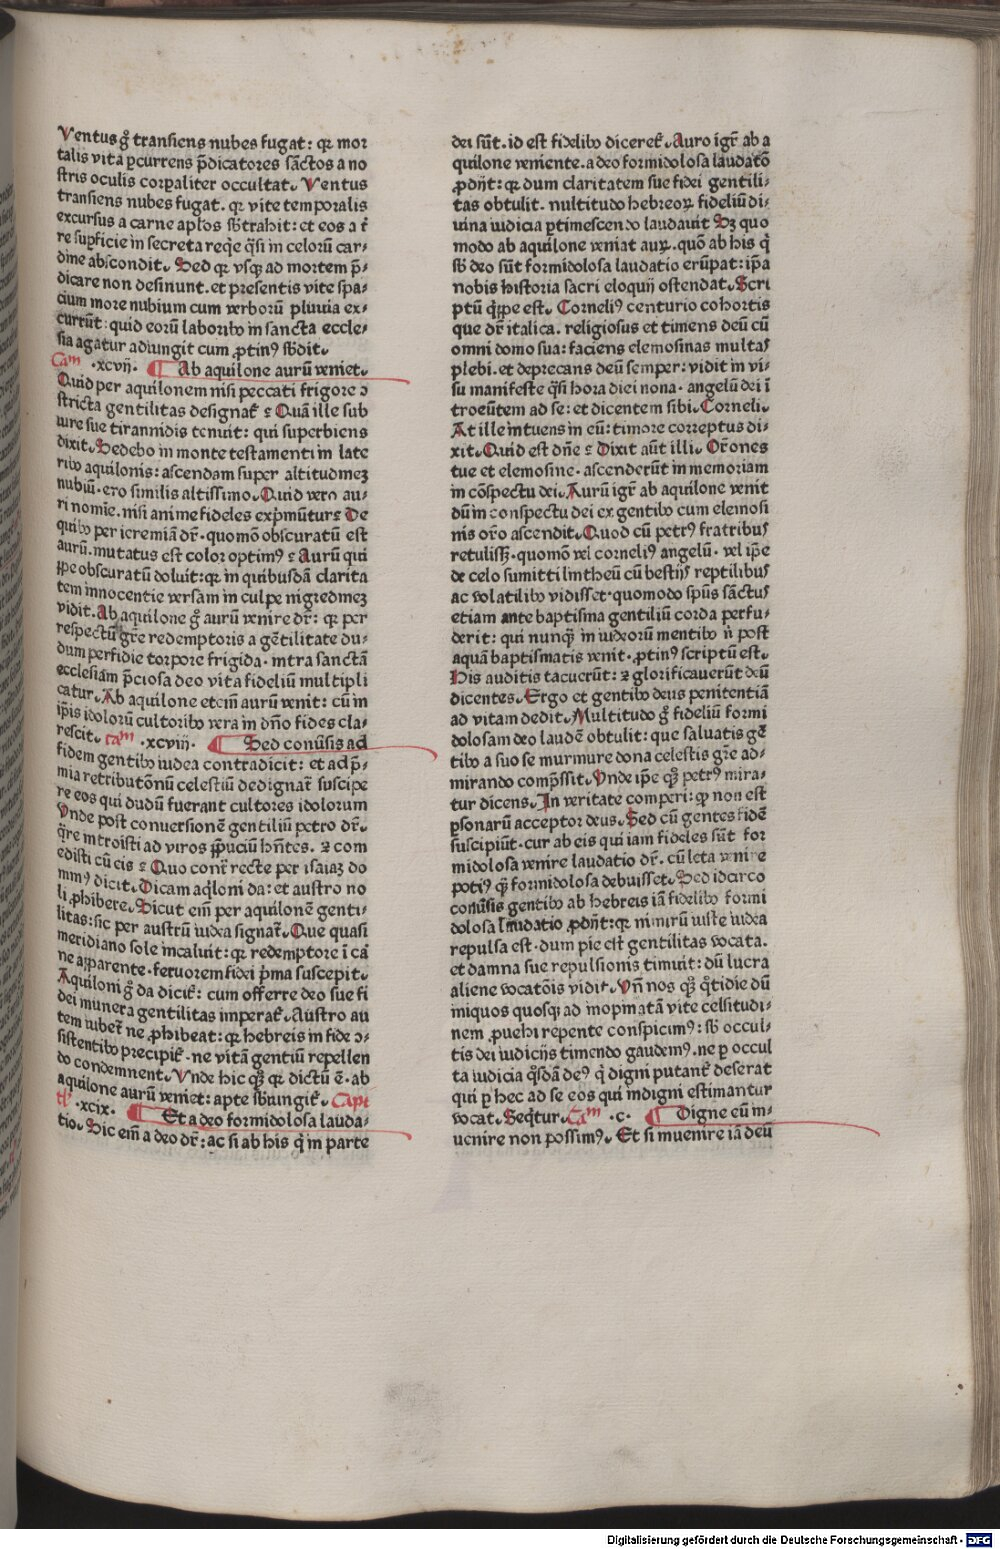 Ventus gͦ transiens nubes fugat: qꝛ mor
talis vita ꝑcurrens p̄dicatores sāctos a no
stris oculis corꝑaliter occultat. Ventus
transiens nubes fugat. qꝛ vite temporalis
excursus a carne aplos sb̄trahit: et eos a t̄
re suꝑficie in secreta reqͥe qͣsi in celorū car-
dine abscondit. Sed qꝛ vsqꝫ ad mortem p̄-
dicare non desinunt. et presentis vite spa-
cium more nubium cum verborū pluuia ex-
currūt: quid eorū laboribꝰ in sancta eccle-
sia agatur adiungit cum ꝓtinꝰ sb̄dit.
Cam̄ .xcvij. Ab aquilone aurū veniet.
Quid per aquilonem nisi peccati frigore ↄ
stricta gentilitas designat᷑ ? Quā ille sub
iure sue tirannidis tenuit: qui superbiens
dixit. Sedebo in monte testamenti in late
ribꝰ aquilonis: ascendam super altitudineꝫ
nubiū. ero similis altissimo. Quid vero au-
ri nomīe. nisi anime fideles exp̄mūtur? De
quibꝰ per ieremiā dr̄. quomō obscuratū est
aurū. mutatus est color optimꝰ ? Aurū qui
ꝓpe obscuratū doluit: qꝛ in quibusdā clarita
tem innocentie versam in culpe nigredineꝫ
vidit. Ab aquilone gͦ aurū venire dr̄: qꝛ per
respectū gr̄e redemptoris a gētilitate du-
dum perfidie torpore frigida. intra sanctā
ecclesiam p̄ciosa deo vita fideliū multipli
catur. Ab aquilone etcm̄ aurū venit: cū in
ip̄is idolorū cultoribꝰ vera in dn̄o fides cla-
rescit. cam̄ .xcviij. Sed conūsis ad
fidem gentibꝰ iudea contradicit: et ad p̄-
mia retributōnū celestiū dedignat᷑ suscipe
re eos qui dudū fuerant cultores idolorum
Vnde post conuersionē gentiliū petro dr̄.
qͣre introisti ad viros p̄puciū hn̄tes. ⁊ com
edisti cū eis ? Quo contͣ recte per isaiaꝫ do
minꝰ dicit. Dicam aqͥloni da: et austro no
li ꝓhibere. Sicut em̄ per aquilonē genti-
litas: sic per austrū iudea signat᷑. Que quasi
meridiano sole incaluit: qꝛ redemptore ī car
ne apparente. feruorem fidei p̄ma suscepit.
Aquiloni gͦ da dicit᷑: cum offerre deo sue fi
dei munera gentilitas imperat᷑. Austro au
tem iubet᷑ ne ꝓhibeat: qꝛ hebreis in fide ↄ-
sistentibꝰ precipit᷑. ne vitā gentiū repellen
do condemnent. Vnde hic qͦqꝫ qꝛ dictū ē. ab
aquilone aurū veniet: apte sb̄iungit᷑. Capi
tl᷑ .xcix. Et a deo formidolosa lauda-
tio. Sic em̄ a deo dr̄: ac si ab his qͥ in parte
dei sūt. id est fidelibꝰ diceret᷑. Auro igr̄ ab a
quilone veniente. a deo formidolosa laudatō
ꝓdijt: qꝛ dum claritatem sue fidei gentili-
tas obtulit. multitudo hebreoꝝ fideliū di-
uina iudicia ꝑtimescendo laudauit Sꝫ quo
modo ab aquilone veniat auꝝ. quō ab his qͥ
sb̄ deo sūt formidolosa laudatio erūpat: ip̄a
nobis historia sacri eloquij ostendat. Scri
ptū qͥppe est. Corneliꝰ centurio cohortis
que dr̄ italica. religiosus et timens deū cū
omni domo sua: faciens elemosinas multas
plebi. et deprecans deū semper: vidit in vi-
su manifeste qͣsi hora diei nona. angelū dei ī
troeūtem ad se: et dicentem sibi. Corneli.
At ille intuens in eū: timore correptus di-
xit. Quid est dn̄e ? Dixit aūt illi. Or̄ones
tue et elemosine. ascenderūt in memoriam
in cōspectu dei. Aurū igr̄ ab aquilone venit
dū in conspectu dei ex gentibꝰ cum elemosi
nis or̄o ascendit. Quod cū petrꝰ fratribus
retulissꝫ. quomō vel corneliꝰ angelū. vel ip̄e
de celo sumitti lintheū cū bestijs reptilibus
ac volatilibꝰ vidisset. quomodo sp̄us sāctus
etiam ante baptisma gentiliū corda perfu-
derit: qui nunqͣ̄ in iudeorū mentibꝰ n̄ post
aquā baptismatis venit. ꝓtinꝰ scriptū est.
His auditis tacuerūt: ⁊ glorificauerūt deū
dicentes. Ergo et gentibꝰ deus penitentiā
ad vitam dedit. Multitudo gͦ fideliū formi
dolosam deo laudē obtulit: que saluatis gē
tibꝰ a suo se murmure dona celestis gr̄e ad-
mirando comp̄ssit. Vnde ip̄e qͦqꝫ petrꝰ mira-
tur dicens. In veritate comperi: qꝛ non est
ꝑsonarū acceptor deus. Sed cū gentes fidē
suscipiūt. cur ab eis qui iam fideles sūt for
midolosa venire laudatio dr̄. cū leta venire
potiꝰ qͣ̄ formidolosa debuisset. Sed idcirco
conūsis gentibꝰ ab hebreis iā fidelibꝰ formi
dolosa laudatio ꝓdijt: qꝛ nimirū iuste iudea
repulsa est. dum pie est gentilitas vocata.
et damna sue repulsionis timuit: dū lucra
aliene vocatōis vidit. Vn̄ nos qͦqꝫ qͦtidie dū
iniquos quosqꝫ ad inopinatā vite celsitudi-
nem ꝓuehi repente conspicimꝰ: sb̄ occul-
tis dei iudicijs timendo gaudemꝰ. ne ꝑ occul
ta iudicia qͦsdā deꝰ qͥ digni putant᷑ deserat
qui ꝑ hec ad se eos qui indigni estimantur
vocat. Seqͥtur. Cam̄ .c. Digne eū in-
uenire non possimꝰ. Et si inuenire iā deū
Digitalisierung gefördert durch die Deutsche Forschungsgemeinschaft - DFG